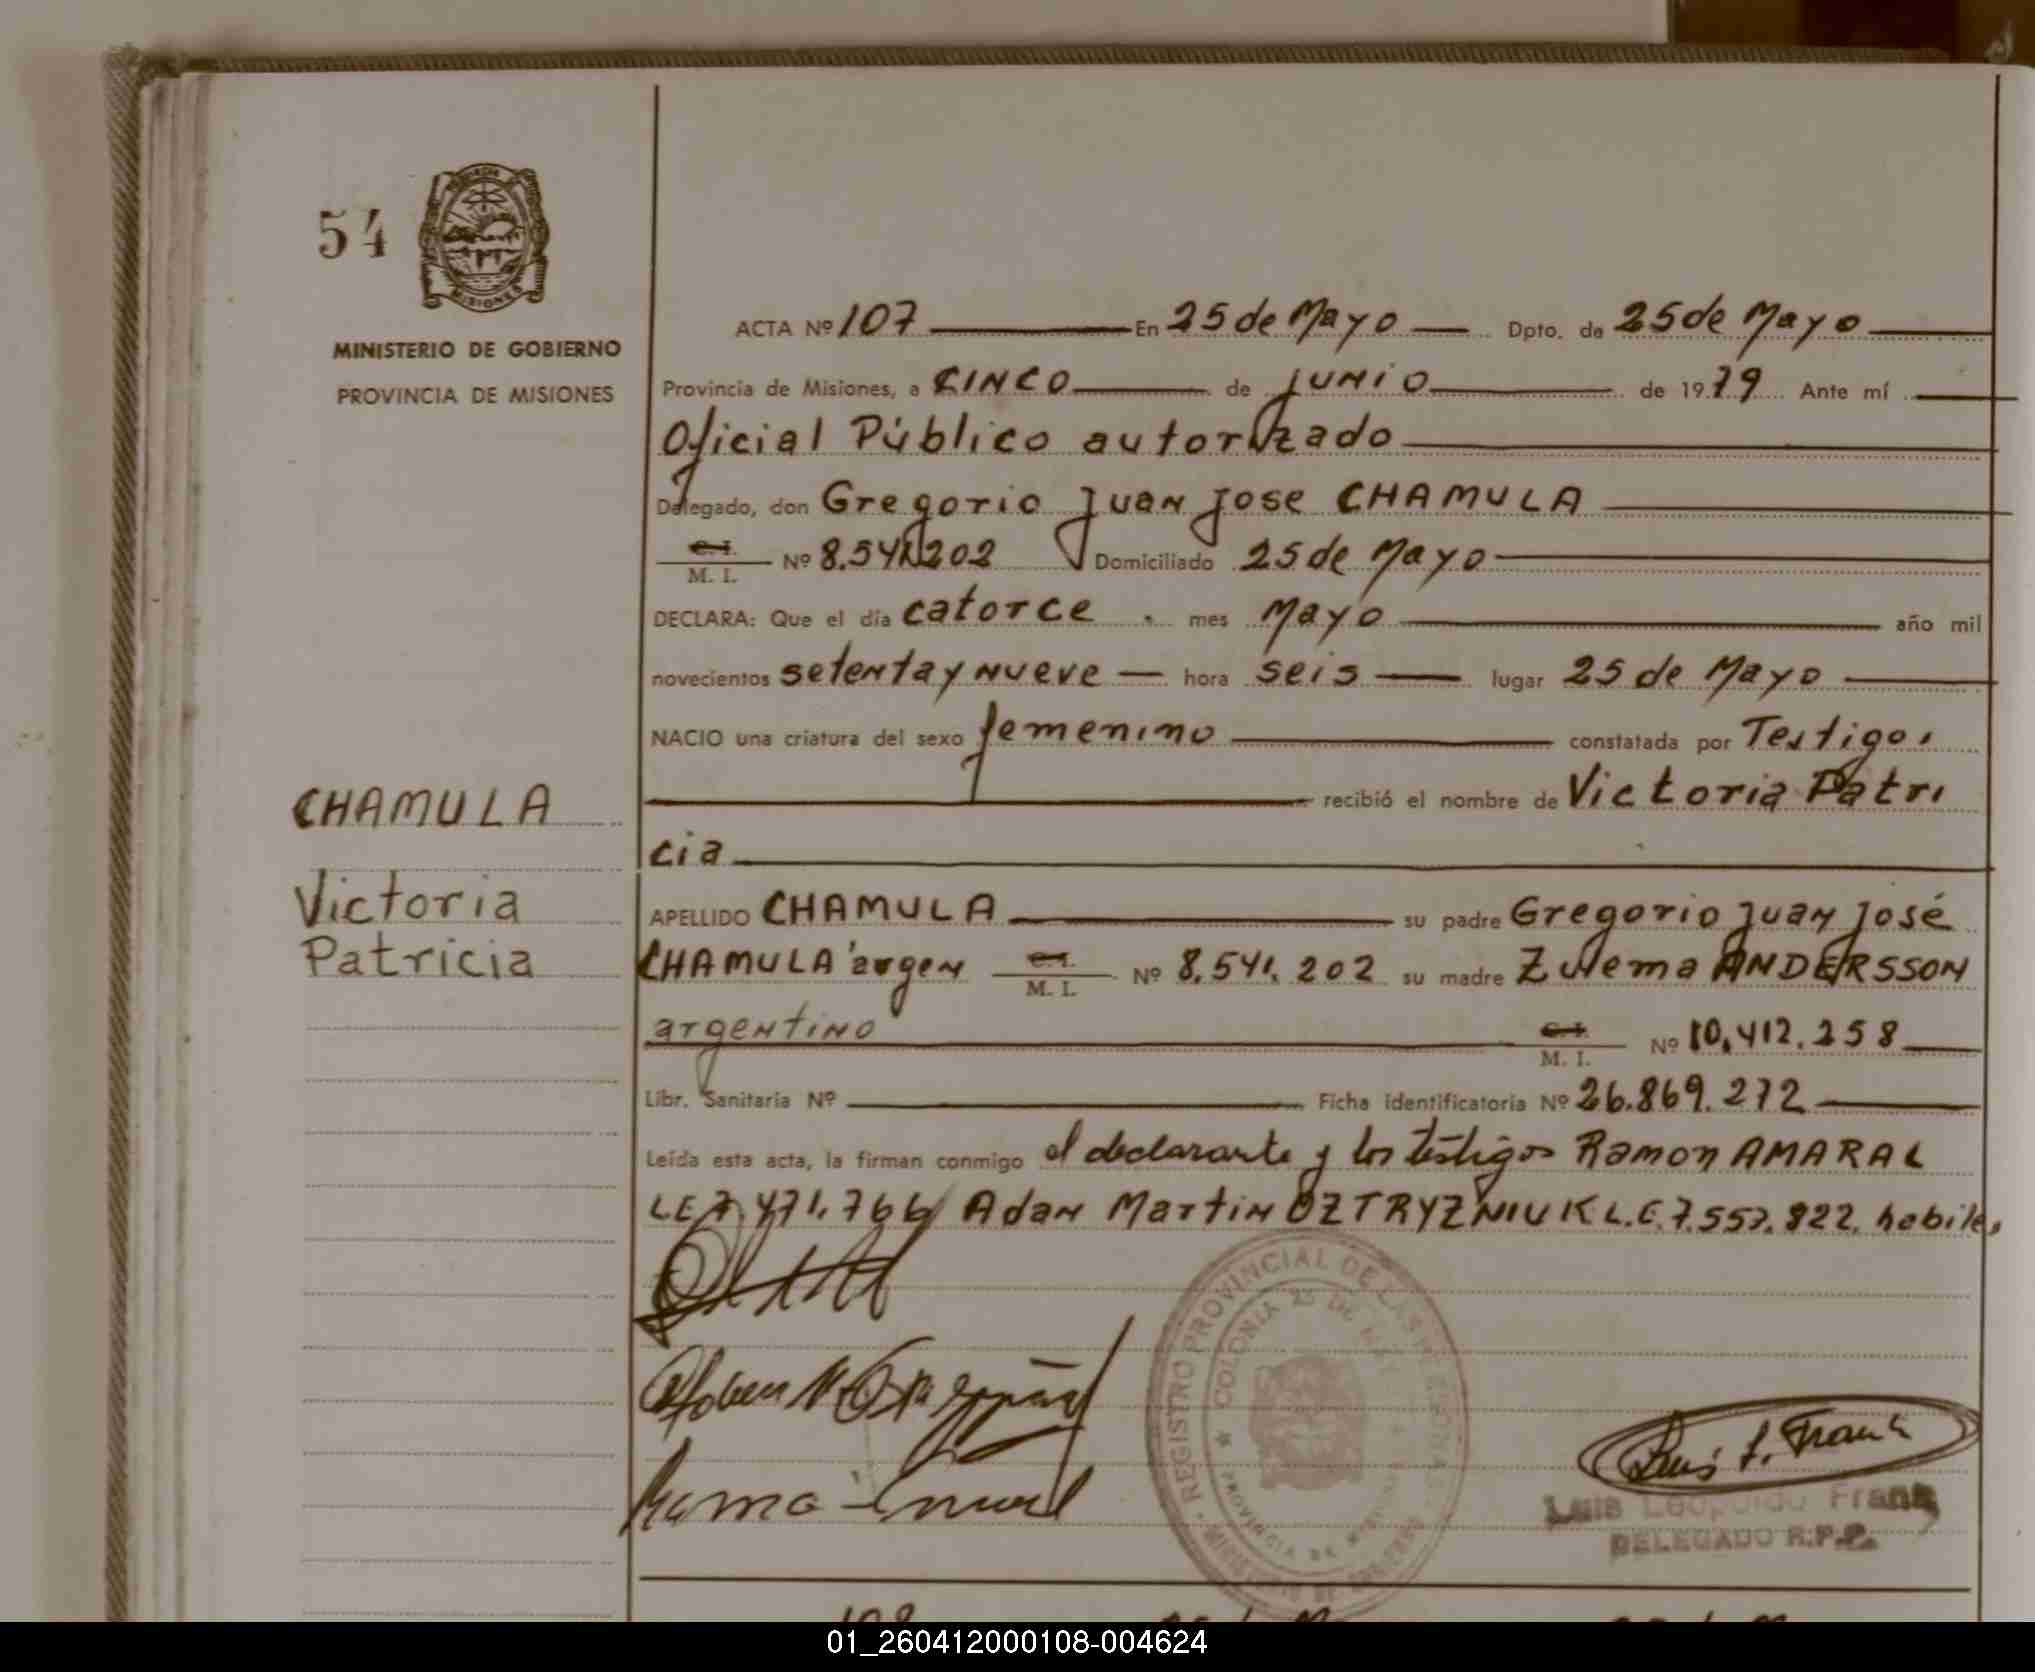 54
MISIONES
MINISTERIO DE GOBIERNO
PROVINCIA DE MISIONES
ACTA Nº 107 En 25 de Mayo Dpto. de 25 de Mayo
Provincia de Misiones, a CINCO de junio de 1979 Ante mí
Oficial Público autorizado
Delegado, don Gregorio Juan Jose CHAMULA
C. I. M. I. Nº 8.541.202 Domiciliado 25 de Mayo
DECLARA: Que el día catorce mes Mayo año mil
novecientos setenta y nueve hora seis lugar 25 de Mayo
NACIO una criatura del sexo femenino constatada por Testigos
recibió el nombre de Victoria Patri
cia
CHAMULA
Victoria
Patricia
APELLIDO CHAMULA su padre Gregorio Juan José
CHAMULA argen C. I. M. I. Nº 8.541.202 su madre Zulema ANDERSSON
argentino C. I. M. I. Nº 10.412.258
Libr. Sanitaria Nº Ficha identificatoria Nº 26.869.272
Leída esta acta, la firman conmigo el declarante y los testigos Ramon AMARAL
LE 7.471.766 Adan Martin OZTRYZNIUK L.E. 7.557.822. habiles
REGISTRO PROVINCIAL DE LAS PERSONAS
COLONIA 25 DE MAYO
PROVINCIA DE MISIONES
MINISTERIO DE GOBIERNO
Luis L. Frank
Luis Leopoldo Frank
DELEGADO R.P.P.
01_260412000108-004624